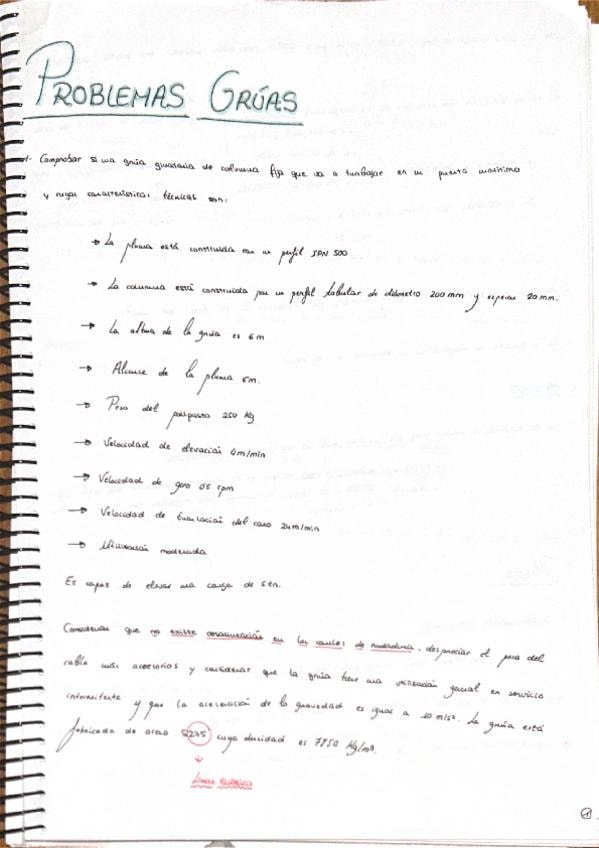 PROBLEMAS GRÚAS
1. Comprobar si una grúa giratoria de columna fija que va a trabajar en un puerto marítimo
y cuyas características técnicas son:
→ La pluma está constituida con un perfil IPN 500
→ La columna está constituida por un perfil tubular de diámetro 200 mm y espesor 20 mm.
→ La altura de la grúa es 6 m
→ Alcance de la pluma 5m.
→ Peso del polipasto 250 Kg
→ Velocidad de elevación 4m/min
→ Velocidad de giro 0'5 rpm
→ Velocidad de traslación del carro 24m/min
→ Utilización moderada
Es capaz de elevar una carga de 5tn.
Considerar que no existe desalineación en los carriles de rodadura, despreciar el peso del
cable más accesorios y considerar que la grúa tiene una utilización general en servicio
intermitente y que la aceleración de la gravedad es igual a 10 m/s². La grúa está
fabricada de acero S275 cuya densidad es 7850 Kg/m³.
↓
Límite elástico
1